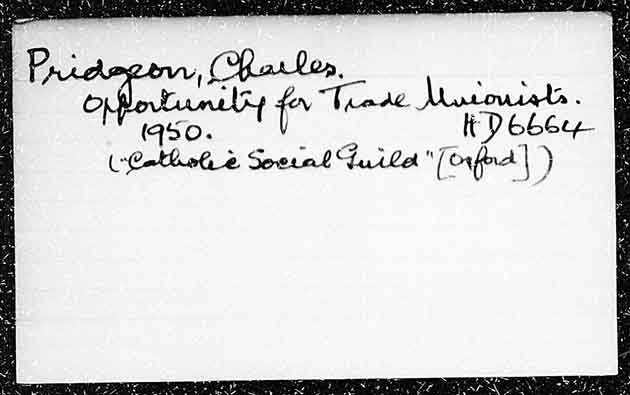 Pridgeon, Charles.
Opportunity for Trade Unionists.
1950. HD6664
("Catholic Social Guild" [Oxford])